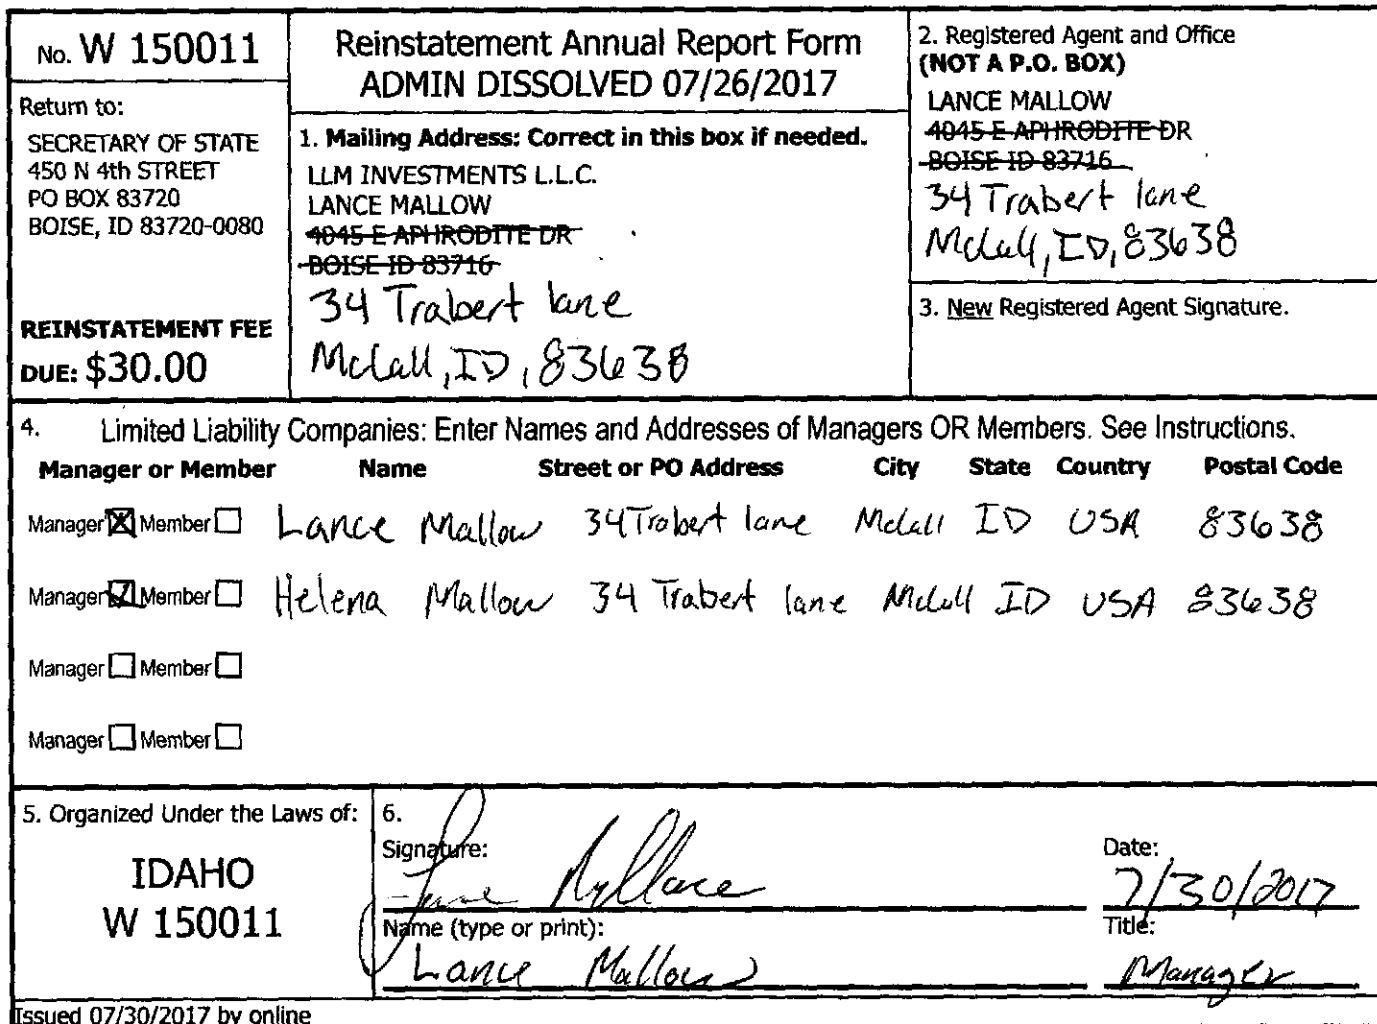 No. W 150011
Return to:
SECRETARY OF STATE
450 N 4th STREET
PO BOX 83720
BOISE, ID 83720-0080
REINSTATEMENT FEE
DUE: $30.00
Reinstatement Annual Report Form
ADMIN DISSOLVED 07/26/2017
1. Mailing Address: Correct in this box if needed.
LLM INVESTMENTS L.L.C.
LANCE MALLOW
4045 E APHRODITE DR
BOISE ID 83716
34 Trabert lane
McCall, ID, 83638
2. Registered Agent and Office
(NOT A P.O. BOX)
LANCE MALLOW
4045 E APHRODITE DR
BOISE ID 83716
34 Trabert lane
McCall, ID, 83638
3. New Registered Agent Signature.
4. Limited Liability Companies: Enter Names and Addresses of Managers OR Members. See Instructions.
Manager or Member Name Street or PO Address City State Country Postal Code
Manager Member Lance Mallow 34 Trabert lane McCall ID USA 83638
Manager Member Helena Mallow 34 Trabert lane McCall ID USA 83638
Manager Member
Manager Member
5. Organized Under the Laws of:
IDAHO
W 150011
6.
Signature:
Date:
7/30/2017
Name (type or print):
Lance Mallow
Title:
Manager
Issued 07/30/2017 by online